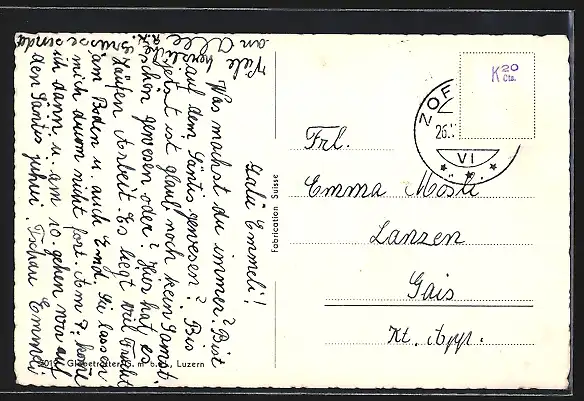 Salü Emmeli!
Was machst du immer? Bist
auf dem Säntis gewesen? Bis
jetzt ist glaub noch kein Samst.
schön gewesen oder? Hier hat es
Haufen Arbeit. Es liegt viel Frucht
am Boden u. auch Emd. Sie lassen
mich darum nicht fort. Am 7. komme
ich dann u. am 10. gehen wir auf
den Säntis juhui. Tschau Emmeli
Viele herzliche
Grüsse
an alle
Fabrication Suisse
Luzern
K 20
Cts.
ZOF
26.
VI
Frl.
Emma Mösli
Lanzen
Gais
Kt. App.